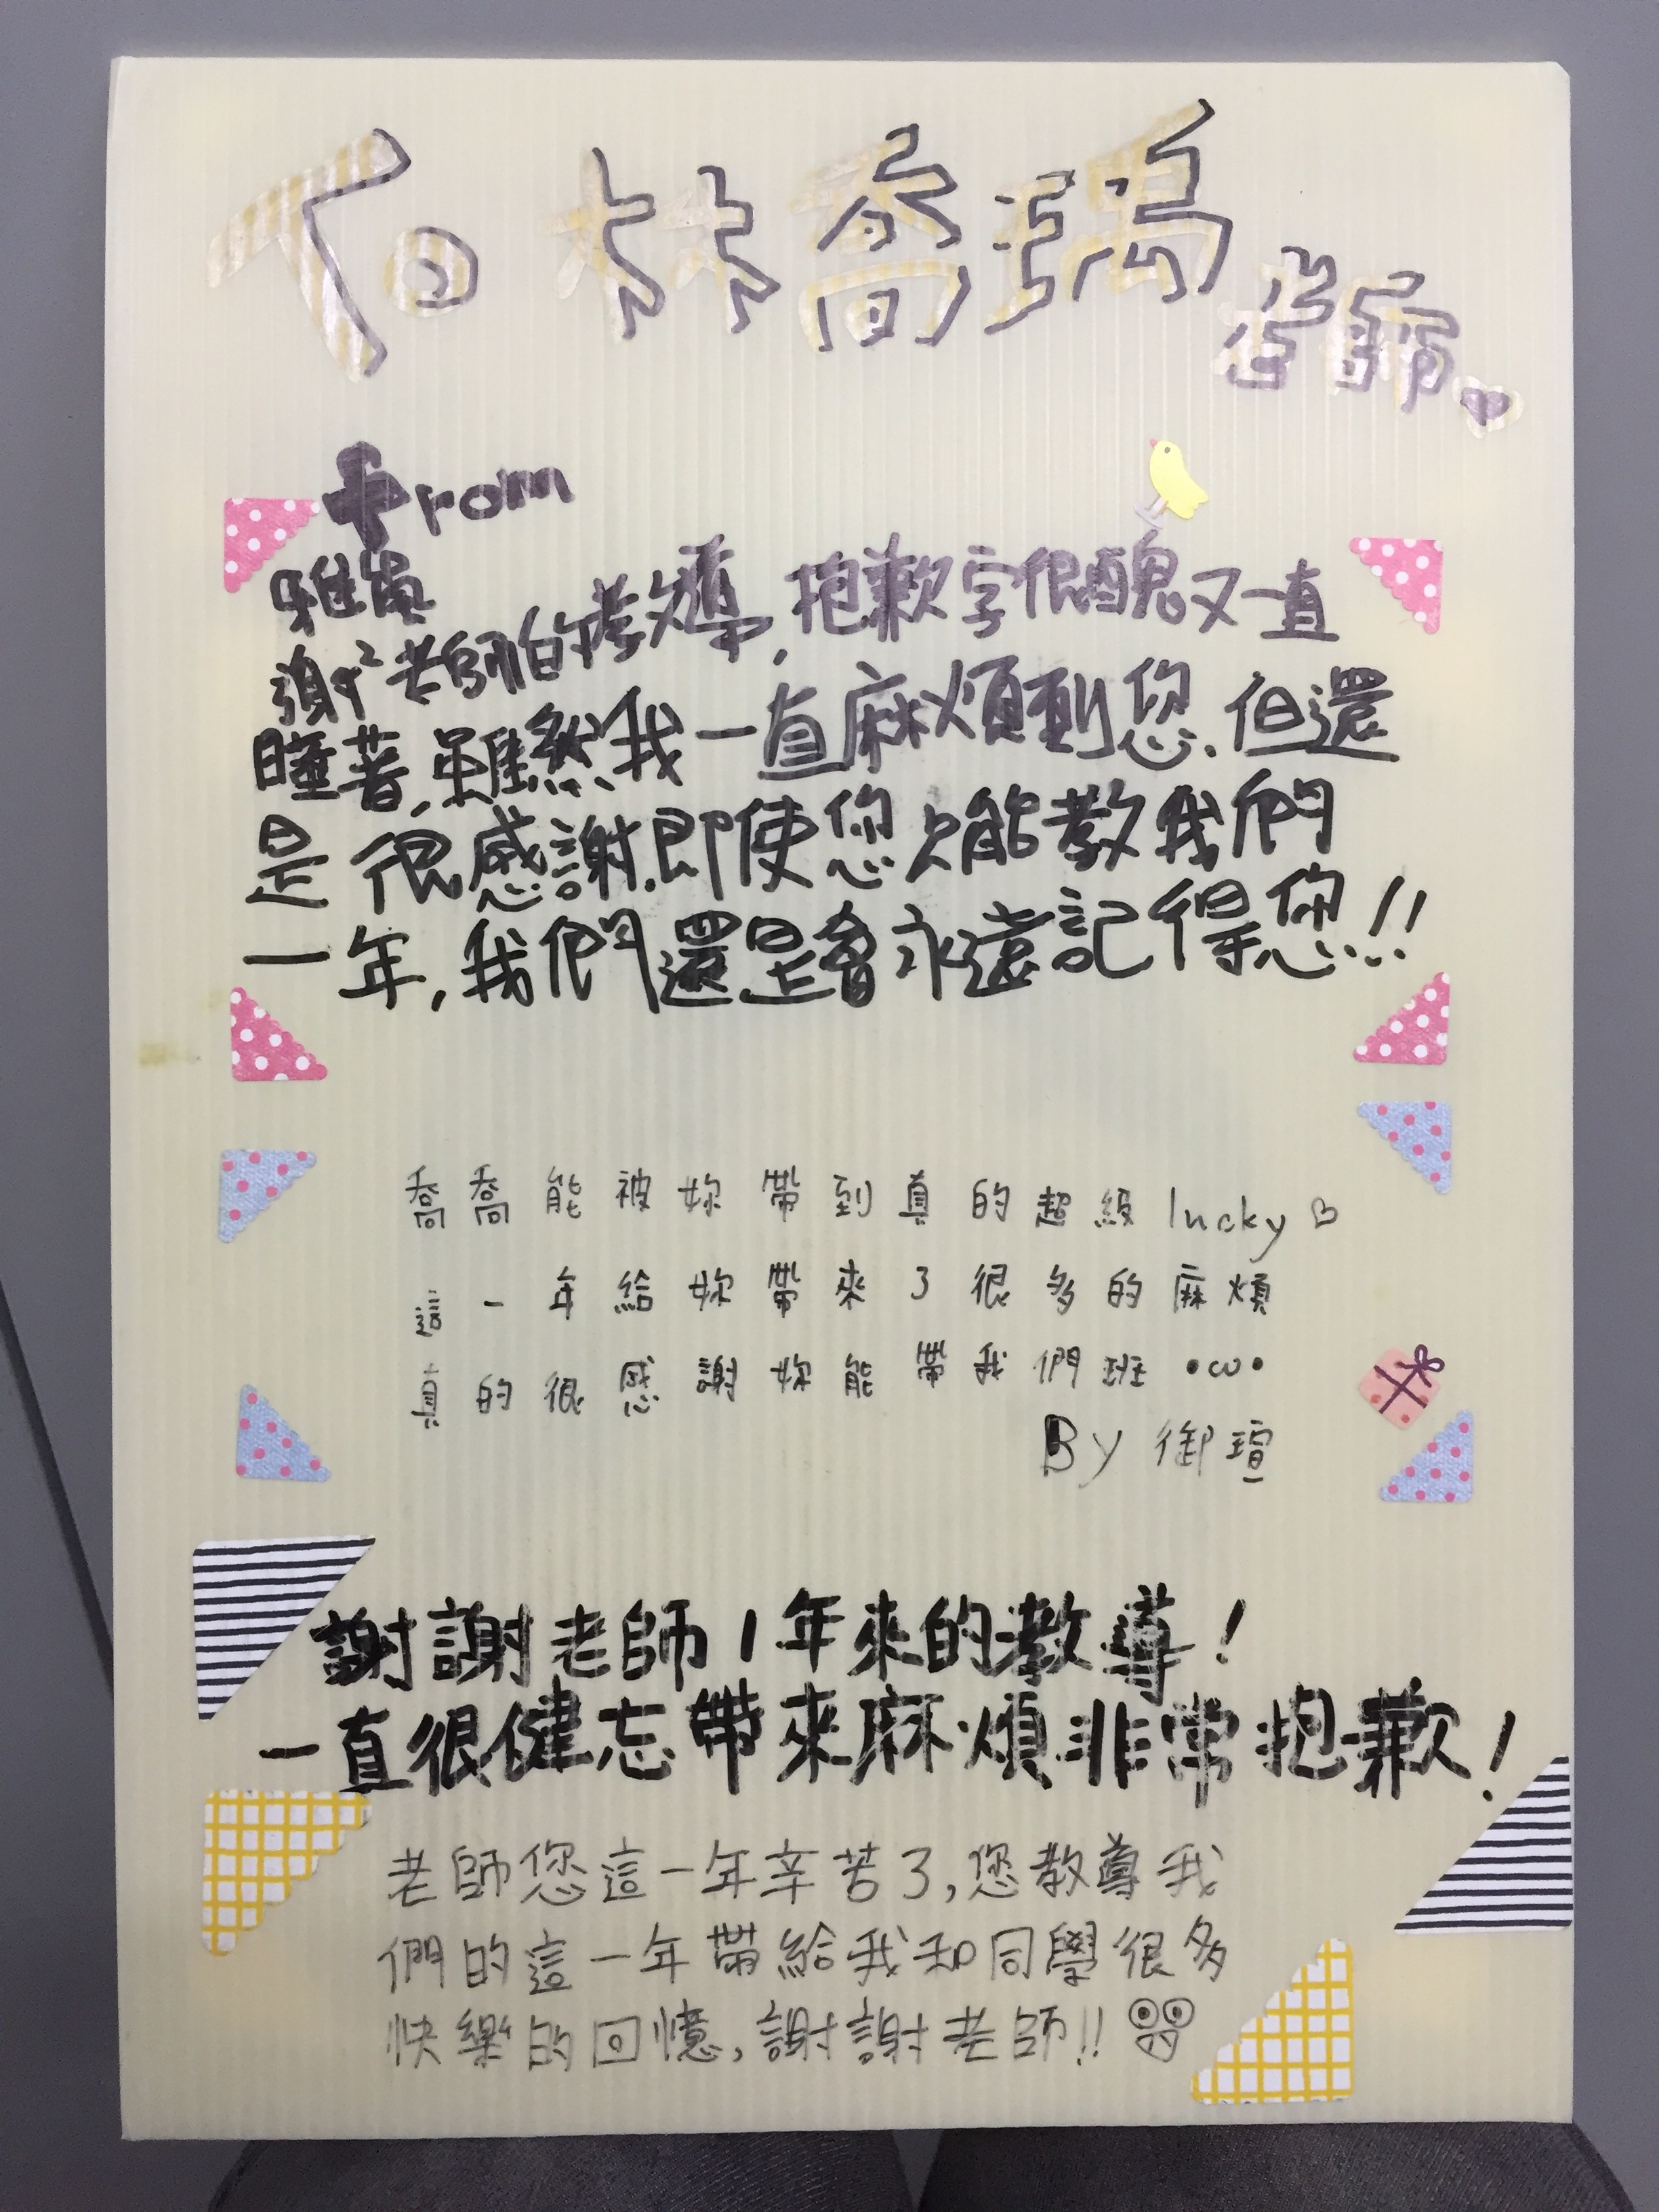 To 林喬瑀老師
From
雅筑
謝²老師的教導,抱歉字很醜又一直
睡著,雖然我一直麻煩到您,但還
是很感謝,即使您只能教我們
一年,我們還是會永遠記得您!!
喬喬能被妳帶到真的超級lucky♡
這一年給妳帶來了很多的麻煩
真的很感謝妳能帶我們班 •ω•
By 御瑄
謝謝老師1年來的教導!
一直很健忘帶來麻煩非常抱歉!
老師您這一年辛苦了,您教導我
們的這一年帶給我和同學很多
快樂的回憶,謝謝老師!!